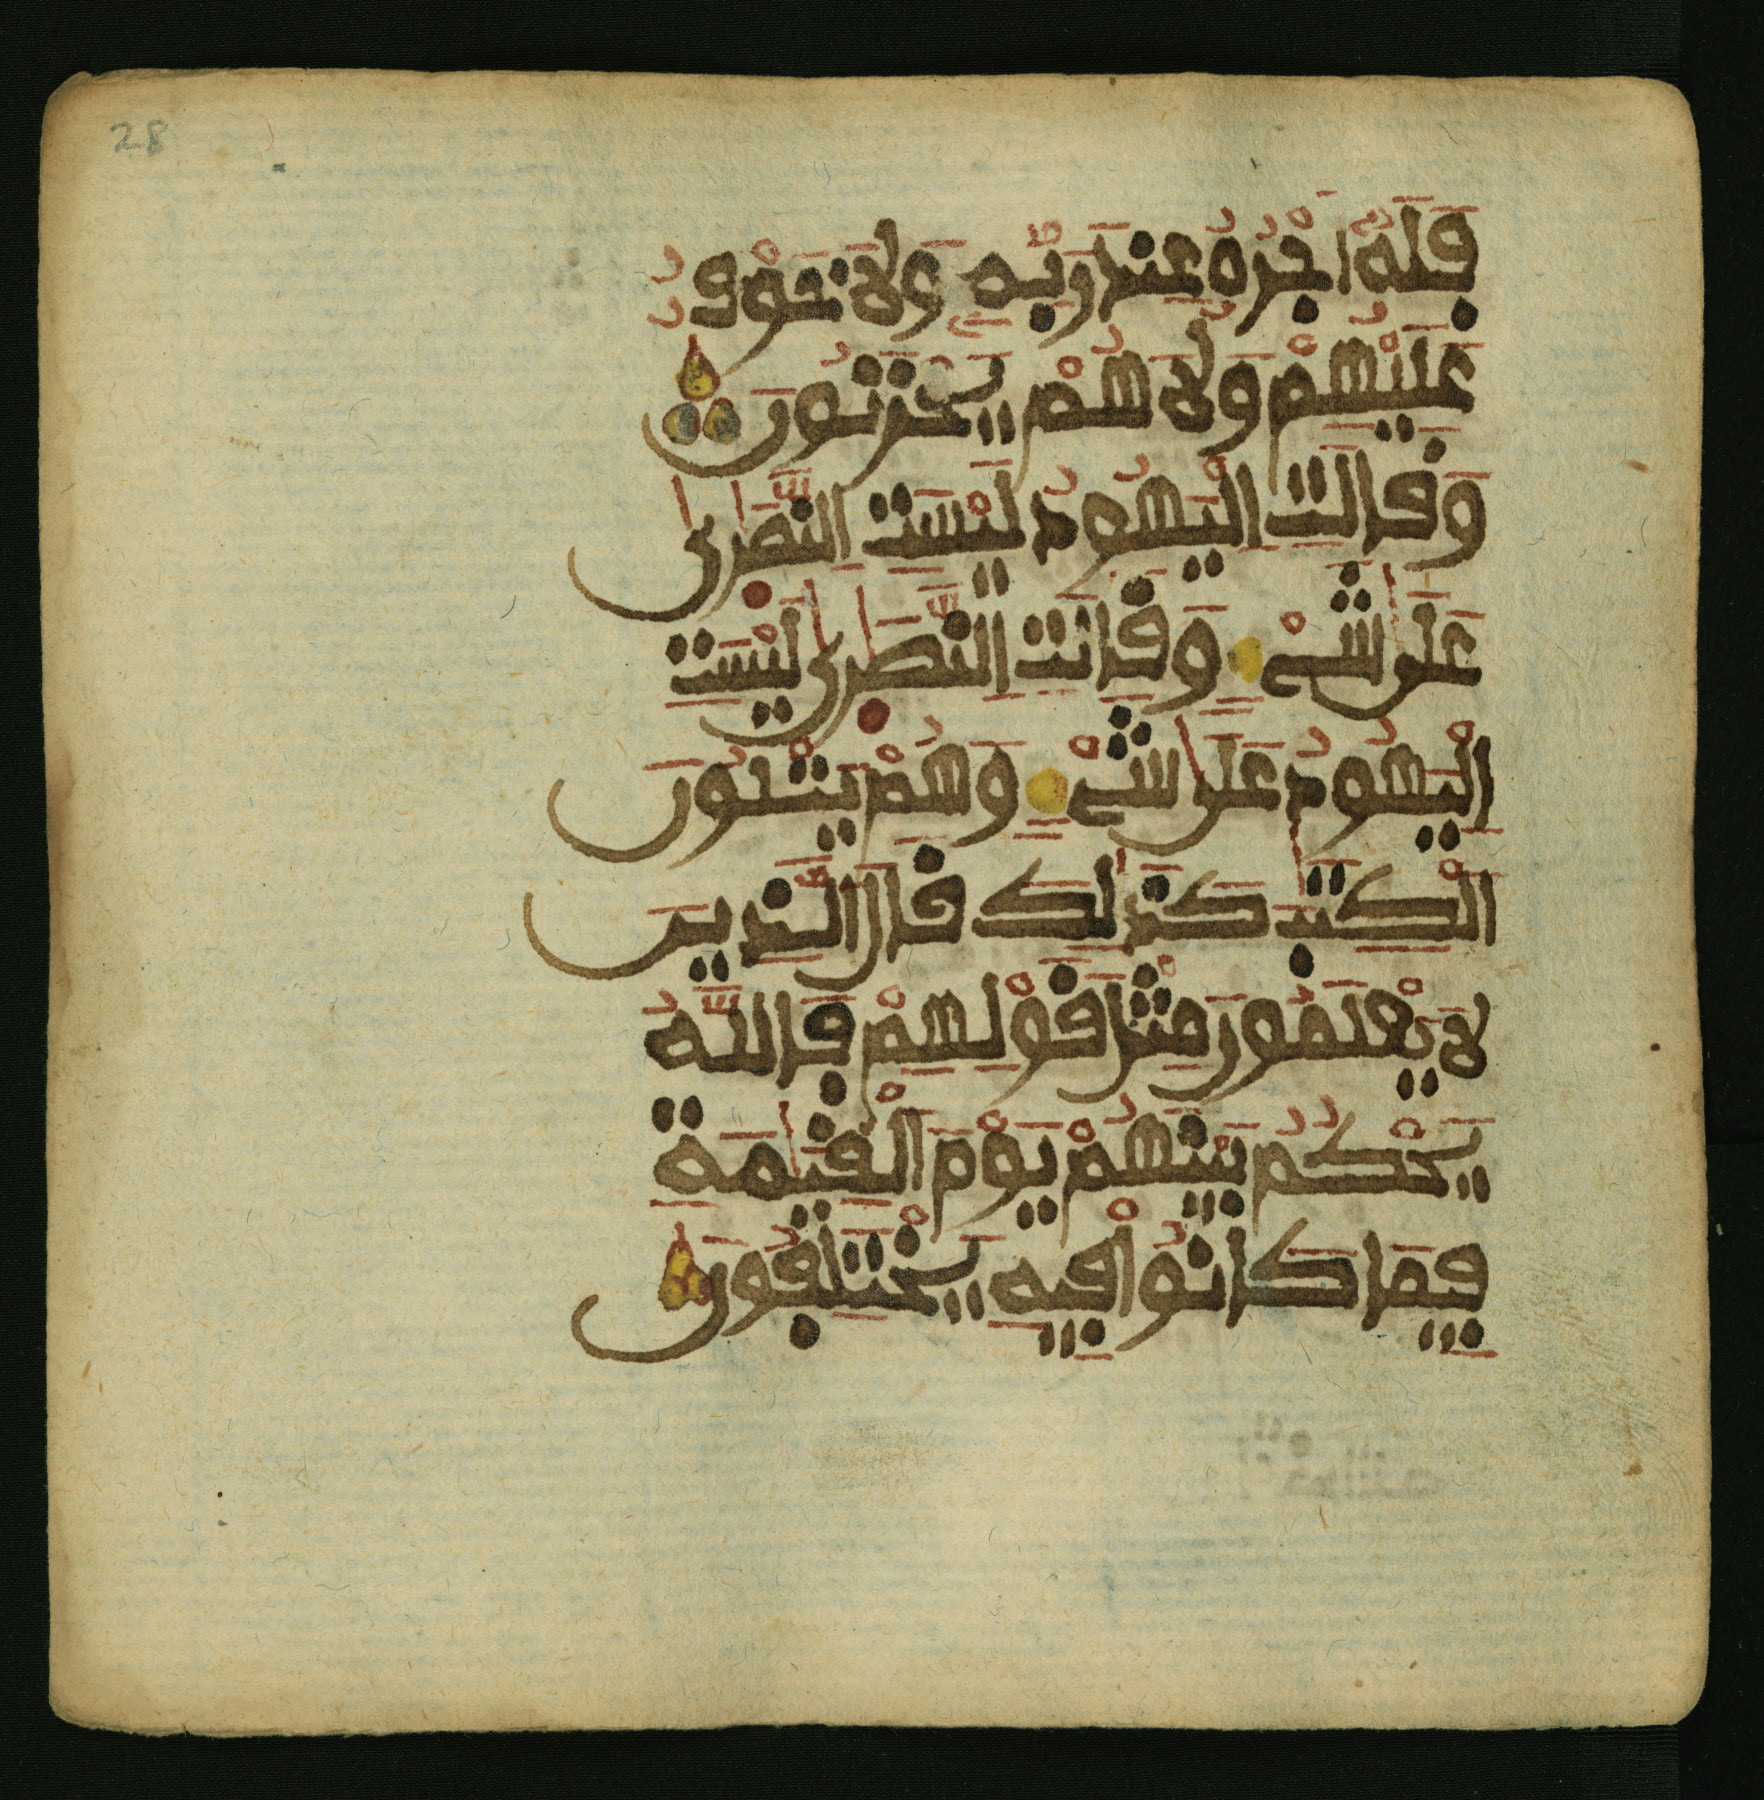 28
فَلَهُۥ أَجْرُهُ عِندَ رَبِّهِۦ وَلَا خَوْفٌ
عَلَيْهِمْ وَلَا هُمْ يَحْزَنُونَ
وَقَالَتِ الْيَهُودُ لَيْسَتِ النَّصَٰرَىٰ
عَلَىٰ شَيْءٍ وَقَالَتِ النَّصَٰرَىٰ لَيْسَتِ
الْيَهُودُ عَلَىٰ شَيْءٍ وَهُمْ يَتْلُونَ
الْكِتَٰبَ كَذَٰلِكَ قَالَ الَّذِينَ
لَا يَعْلَمُونَ مِثْلَ قَوْلِهِمْ فَاللَّهُ
يَحْكُمُ بَيْنَهُمْ يَوْمَ الْقِيَٰمَةِ
فِيمَا كَانُوا فِيهِ يَخْتَلِفُونَ